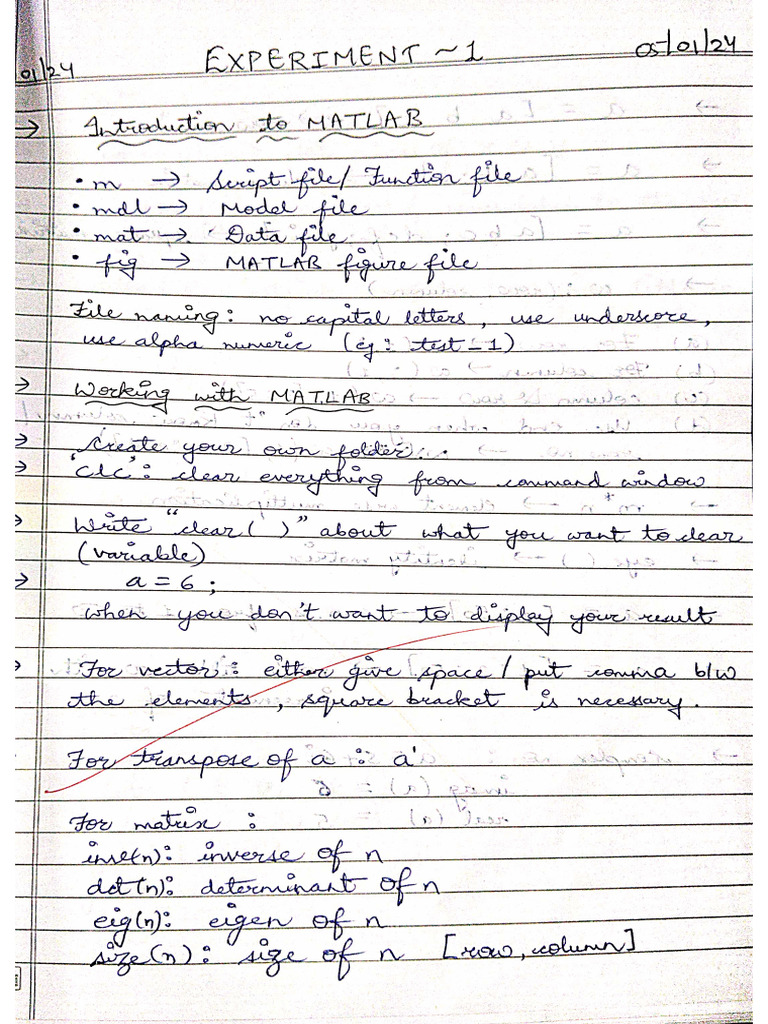 EXPERIMENT ~ 1
05/01/24
01/24
→ Introduction to MATLAB
• m → Script file/ Function file
• mdl → Model file
• mat → Data file
• fig → MATLAB figure file
File naming: no capital letters, use underscore,
use alpha numeric (eg: test_1)
→ Working with MATLAB
→ Create your own folder.
→ 'clc': clear everything from command window
→ Write "clear( )" about what you want to clear
(variable)
→ a = 6 ;
when you don't want to display your result
→ For vector: either give space / put comma b/w
the elements, square bracket is necessary.
For transpose of a : a'
For matrix :
inve(n): inverse of n
det(n): determinant of n
eig(n): eigen of n
size(n): size of n [row, column]